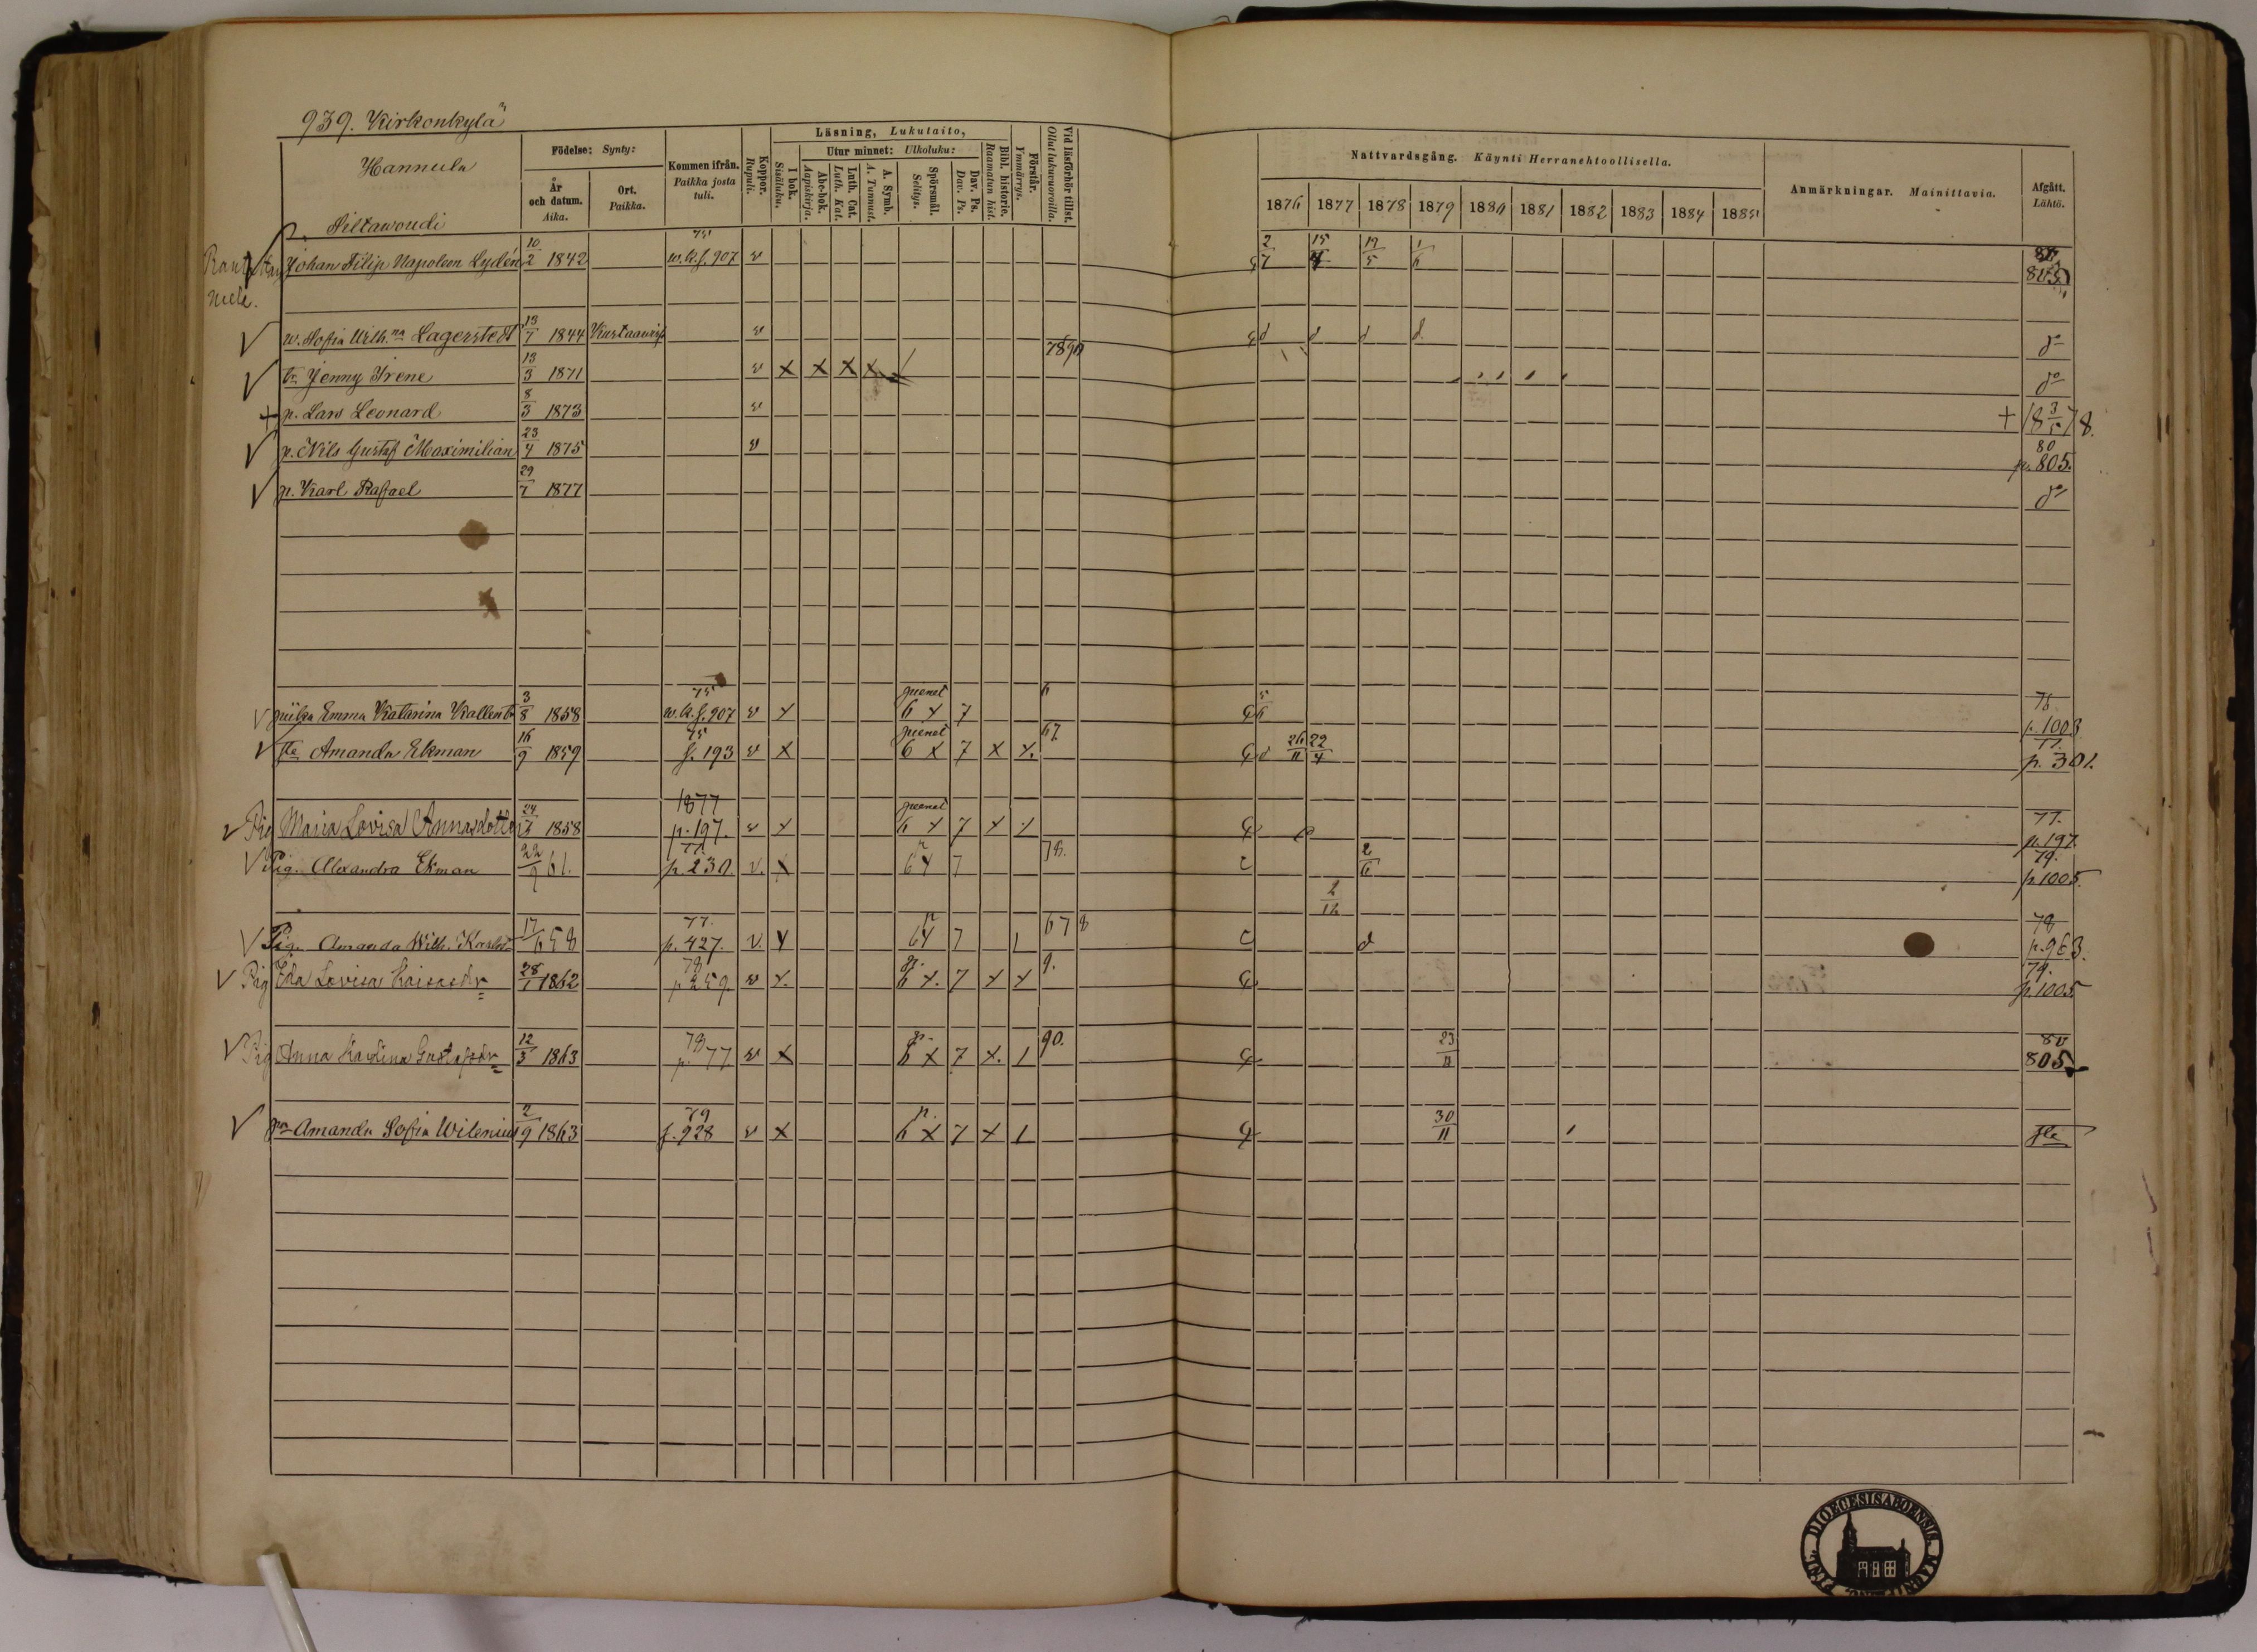 939. Kirkonkylä
Hannula
Siltawoudi
Födelse: Synty:
År och datum. Aika.
Ort. Paikka.
Kommen ifrån. Paikka josta tuli.
Koppor. Rupuli.
Läsning, Lukutaito,
I bok. Sisäluku.
Utur minnet: Ulkoluku:
Abc-bok. Aapiskirja.
Luth. Cat. Luth. Kat.
A. Symb. A. Tunnust.
Spörsmål. Selitys.
Dav. Ps. Dav. Ps.
Bibl. historie. Raamatun hist.
Förstår. Ymmärrys.
Vid läsförhör tillst. Ollut lukuvuoroilla.
Nattvardsgång. Käynti Herranehtoollisella.
1876 1877 1878 1879 1880 1881 1882 1883 1884 1885
Anmärkningar. Mainittavia.
Afgått. Lähtö.
Johan Filip Napoleon Lydén 10/2 1842 75 w.k.s. 907 v 2/7 15/4 19/5 1/6 80 805
w. Sofia Wilh.na Lagerstedt 13/7 1844 v d d d do
tr. Jenny Irene 13/3 1871 v x x x x 7890 do
+ p. Lars Leonard 8/3 1873 v + 18 3/5 78.
p. Nils Gustaf Maximilian 23/4 1875 v 80 p. 805.
p. Karl Rafael 29/7 1877 do
piika Emma Katarina 3/8 1858 75 w.k.s. 907 v x 6 x 7 6 5/6 76 p. 1003
Amanda Ekman 16/9 1859 75 s. 193 v x 6 x 7 x x. 67. 26/11 22/4 77. p. 301.
Pig Maria Lovisa Annasdotter 1858 1877 p. 197. v x 6 x 7 x 77. p. 197
Pig. Alexandra Ekman 22/9 61. 77. p. 230. v. x 6 x 7 78. c 2/6 79. p. 1005.
2/12
Pig. Amanda Wilh. 17/6 58 77. p. 427. v. x 6 x 7 1 678 c d 78 p. 963.
Pig Ida Lovisa Kaisasdr 28/1 1862 78 p 259. v x. 6 x. 7 x x 9. 79. p. 1005.
Pig Anna Karolina Gustafsdr 12/3 1863 79 p. 77 v x 6 x 7 x. 1 90. 23/11 80 805
Amanda Sofia Wilenius 2/9 1863 79 s. 928 v x 6 x 7 x 1 30/11
DIOECESIS ABOENSIS